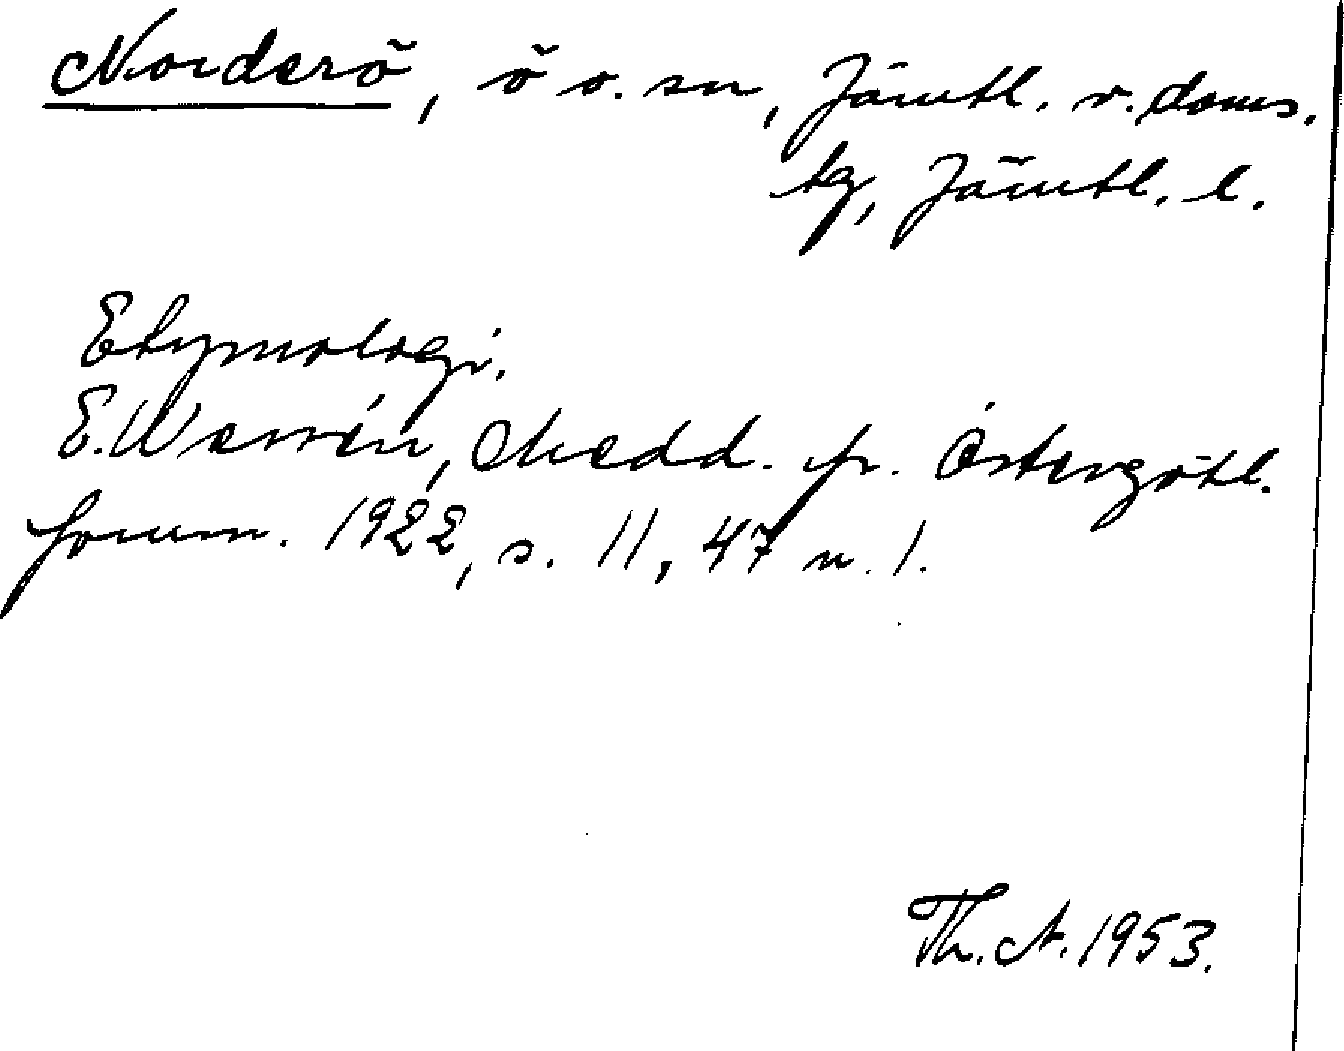 Norderö, ö o. sn, Jämtl. v. doms.
tg, Jämtl. l.
Etymologi.
E. Wessén, Medd. fr. Östergötl.
fornm. 1922, s. 11, 47 n. 1.
Th. A. 1953.